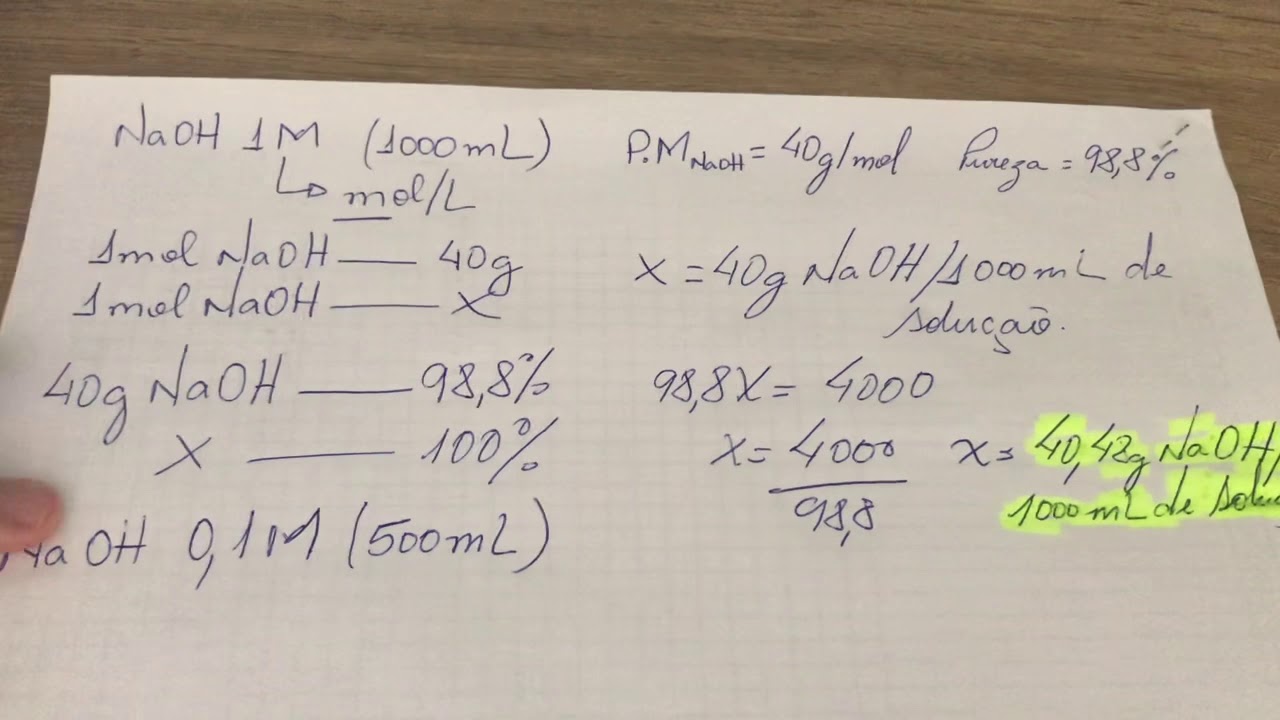 NaOH 1M (1000mL) P.M NaOH = 40g/mol Pureza = 98,8%
mol/L
1mol NaOH — 40g
1mol NaOH — X
X = 40g NaOH/1000mL de
solução.
40g NaOH — 98,8%
X — 100%
98,8X = 4000
X = 4000
98,8
X = 40,48g NaOH/
1000mL de
NaOH 0,1M (500mL)